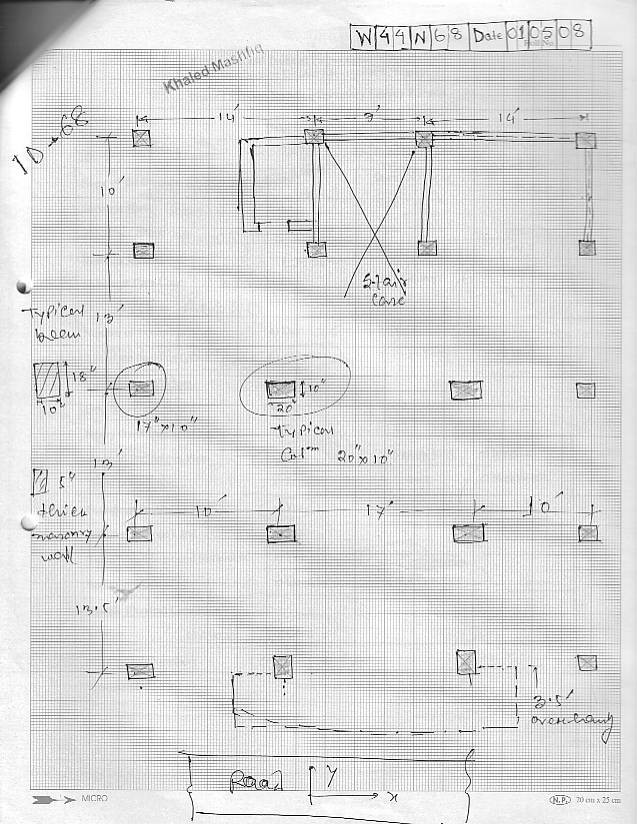 W 44 N 68 Date 01 05 08
Khaled Mashfiq
ID → 68
14' 9' 14'
10'
Stair
Case
Typical
beam
13'
18"
10"
10"
20"
17" x 10"
Typical
20" x 10"
13'
5"
thick
masonry
wall
10' 17' 10'
13.5'
3.5'
overhang
Road
Y
x
MICRO
N.P. 20 cm x 25 cm